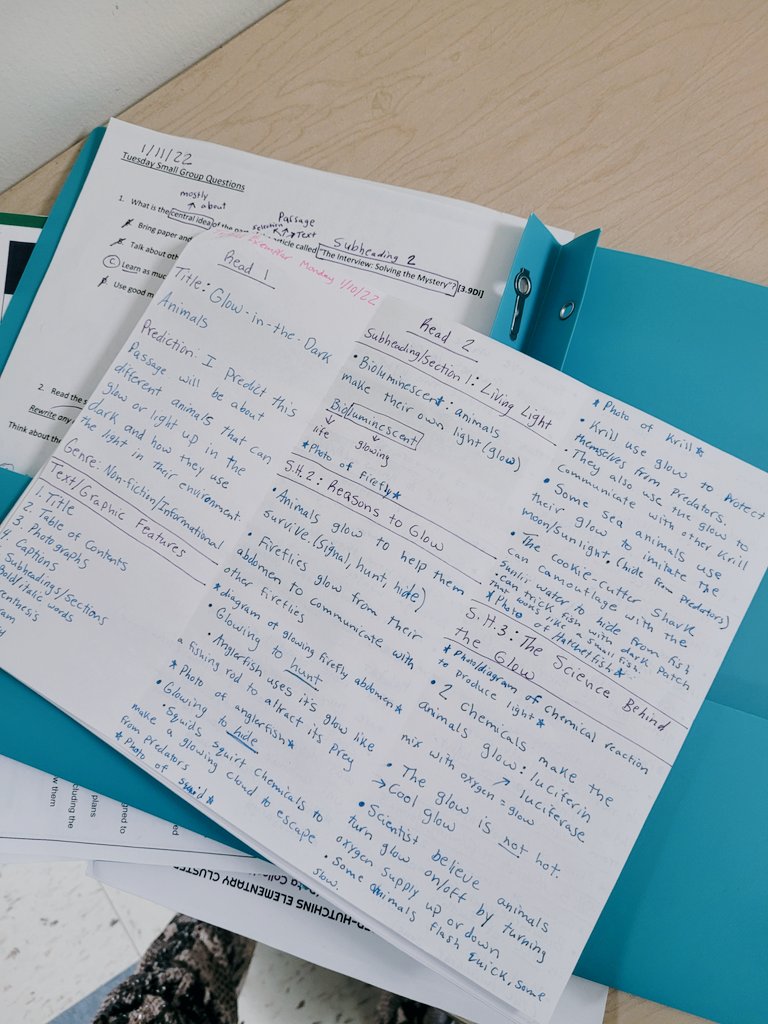 1/11/22
Tuesday Small Group Questions
mostly
about
1. What is the central idea of the
Passage
Text
Subheading 2
article called "The Interview: Solving the Mystery"? [3.9Di]
Bring paper and
Talk about oth
C Learn as muc
Use good m
2. Read the s
Rewrite any
Think about the
Exemplar Monday 1/10/22
Read 1
Title: Glow-in-the-Dark
Animals
Prediction: I Predict this
Passage will be about
different animals that can
glow or light up in the
dark and how they use
the light in their environment.
Genre: Non-fiction/Informational
Text/Graphic Features
1. Title
2. Table of Contents
3. Photographs
4. Captions
Subheadings/sections
Bold/italic words
Read 2
Subheading/Section 1: Living Light
• Bioluminescent: animals
make their own light (glow)
Bioluminescent
life glowing
*Photo of firefly*
S.H.2: Reasons to Glow
• Animals glow to help them
survive. (signal, hunt, hide)
• Fireflies glow from their
abdomen to communicate with
other fireflies
*diagram of glowing firefly abdomen*
• Glowing to hunt
• Anglerfish uses it's glow like
a fishing rod to attract its prey
*Photo of anglerfish*
• Glowing to hide
• Squids squirt chemicals to
make a glowing cloud to escape
from predators
*Photo of squid*
*Photo of Krill*
• Krill use glow to Protect
themselves from Predators.
• They also use the glow to
communicate with other Krill
• Some sea animals use
their glow to imitate the
moon/sunlight. (hide from predators)
• The cookie-cutter Shark
can camouflage with the
sunlit water to hide from fish
• can trick fish with dark patch
that looks like a small fish.
*Photo of Hatchetfish*
S.H.3: The Science Behind
the Glow
*Photo/diagram of chemical reaction
to produce light*
• 2 chemicals make the
animals glow: luciferin
luciferase
mix with oxygen = glow
• The glow is not hot.
→ Cool glow
• Scientist believe animals
turn glow on/off by turning
oxygen supply up or down
• Some animals flash quick, some
slow.
HUTCHINS ELEMENTARY CLUSTER
plans
cluding the